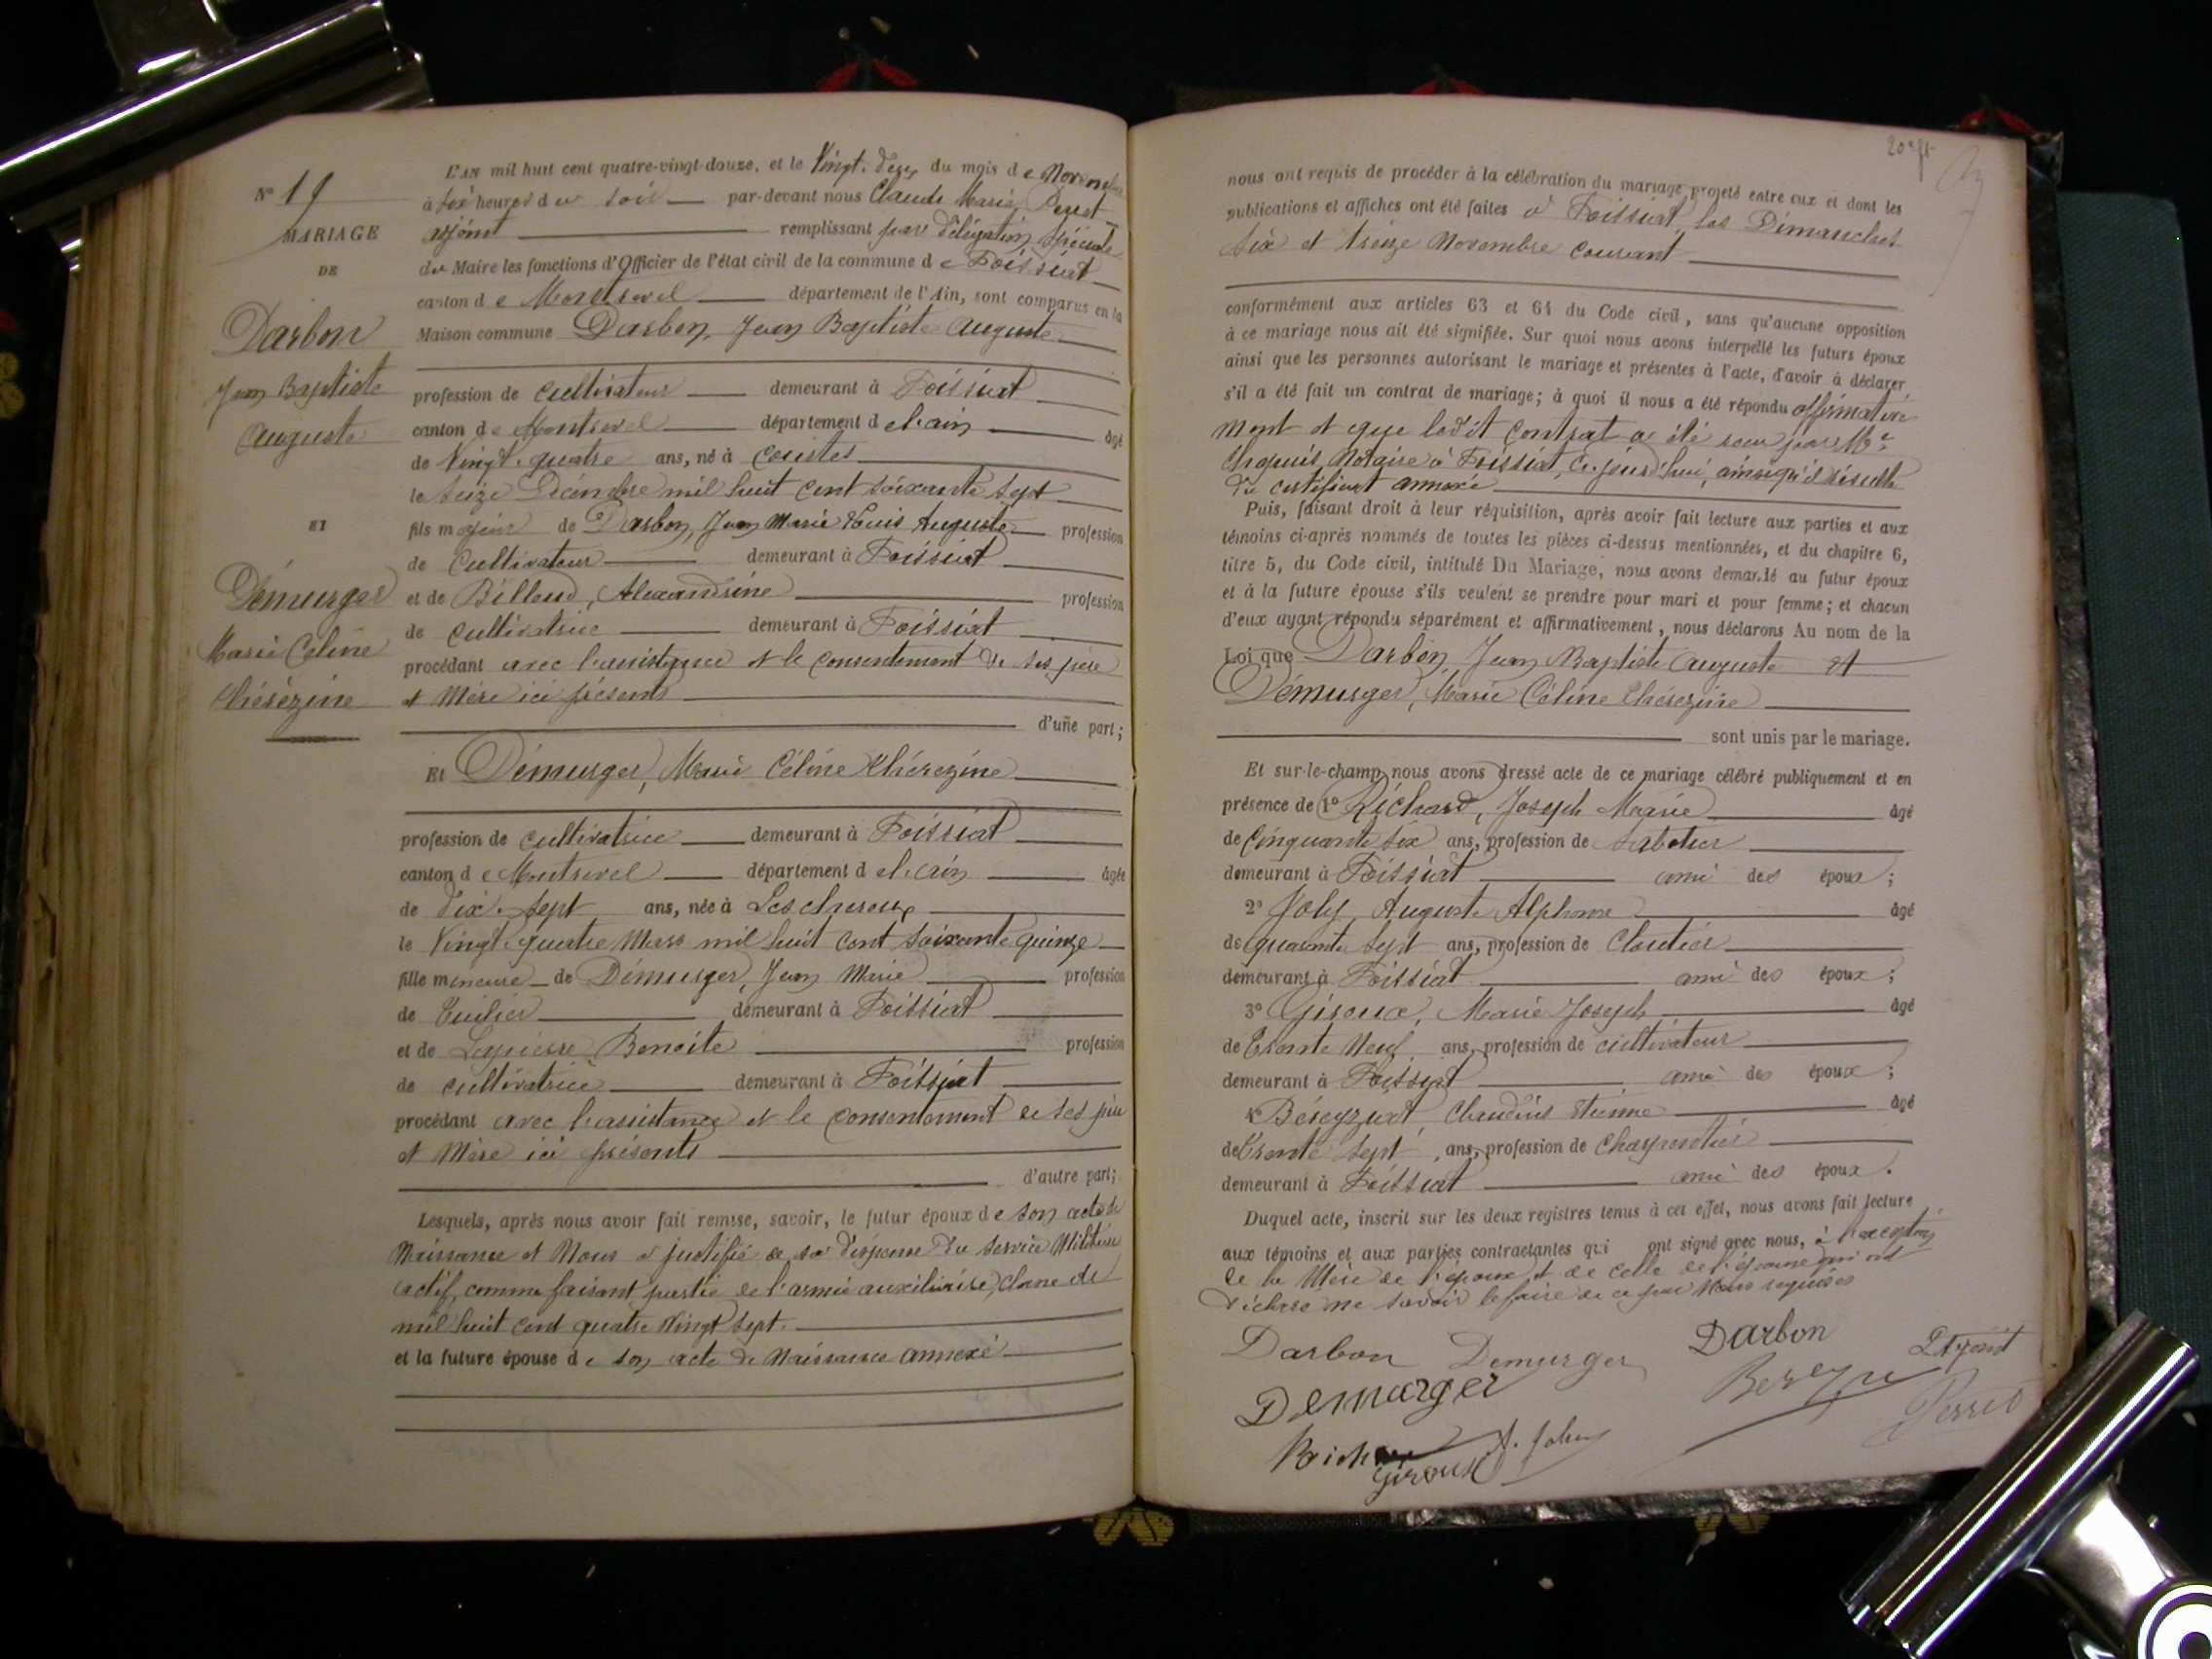 L'AN mil huit cent quatre-vingt-douze, et le Vingt-deux du mois de Novembre
N° 19
à six heures du soir par-devant nous Claude Marie
MARIAGE
adjoint remplissant par délégation spéciale
DE
du Maire les fonctions d'Officier de l'état civil de la commune de Foissiat
canton de Montrevel département de l'Ain, sont comparus en la
Darbon
Maison commune Darbon, Jean Baptiste Auguste
Jean Baptiste
profession de cultivateur demeurant à Foissiat
Auguste
canton de Montrevel département de l'ain âgé
de Vingt-quatre ans, né à
le seize Décembre mil huit cent soixante sept
ET
fils majeur de Darbon, Jean Marie Louis Auguste profession
de Cultivateur demeurant à Foissiat
Démurger
et de Billoud, Alexandrine profession
de cultivatrice demeurant à Foissiat
Marie Céline
procédant avec l'assistance et le consentement de ses père
Thérézine
et Mère ici présents
d'une part;
Et Démurger, Marie Céline Thérézine
profession de cultivatrice demeurant à Foissiat
canton de Montrevel département de l'ain âgée
de dix-sept ans, née à Lescheroux
le Vingt-quatre Mars mil huit cent soixante quinze
fille mineure de Démurger, Jean Marie profession
de Tuilier demeurant à Foissiat
et de Benoite profession
de cultivatrice demeurant à Foissiat
procédant avec l'assistance et le consentement de ses père
et Mère ici présents
d'autre part;
Lesquels, après nous avoir fait remise, savoir, le futur époux de son acte de
Naissance et Nous a justifié de sa dispense du service Militaire
actif, comme faisant partie de l'armée auxiliaire, classe de
mil huit cent quatre Vingt sept.
et la future épouse de son acte de Naissance annexé
nous ont requis de procéder à la célébration du mariage projeté entre eux et dont les
publications et affiches ont été faites à Foissiat, les Dimanches
six et treize Novembre courant
conformément aux articles 63 et 64 du Code civil, sans qu'aucune opposition
à ce mariage nous ait été signifiée. Sur quoi nous avons interpellé les futurs époux
ainsi que les personnes autorisant le mariage et présentes à l'acte, d'avoir à déclarer
s'il a été fait un contrat de mariage; à quoi il nous a été répondu affirmative
ment et que ledit contrat a été reçu par Me
Chapuis Notaire à Foissiat, ce jourd'hui, ainsi qu'il résulte
du certificat annexé
Puis, faisant droit à leur réquisition, après avoir fait lecture aux parties et aux
témoins ci-après nommés de toutes les pièces ci-dessus mentionnées, et du chapitre 6,
titre 5, du Code civil, intitulé Du Mariage, nous avons demandé au futur époux
et à la future épouse s'ils veulent se prendre pour mari et pour femme; et chacun
d'eux ayant répondu séparément et affirmativement, nous déclarons Au nom de la
Loi que Darbon, Jean Baptiste Auguste et
Démurger, Marie Céline Thérézine
sont unis par le mariage.
Et sur-le-champ nous avons dressé acte de ce mariage célébré publiquement et en
présence de 1° Richard, Joseph Marie âgé
de Cinquante six ans, profession de sabotier
demeurant à Foissiat ami des époux;
2° Joly, Auguste Alphonse âgé
de quarante sept ans, profession de Cloutier
demeurant à Foissiat ami des époux;
3° Giroux, Marie Joseph âgé
de Trente Neuf ans, profession de cultivateur
demeurant à Foissiat ami des époux;
4° Béreyziat, Claudius Etienne âgé
de Trente sept, ans, profession de Charpentier
demeurant à Foissiat ami des époux.
Duquel acte, inscrit sur les deux registres tenus à cet effet, nous avons fait lecture
aux témoins et aux parties contractantes qui ont signé avec nous, à l'exception
de la Mère de l'époux et de celle de l'épouse qui ont
déclaré ne savoir le faire de ce par Nous requises
Darbon Demurger Darbon L'adjoint
Demurger
A. Joly
Giroux